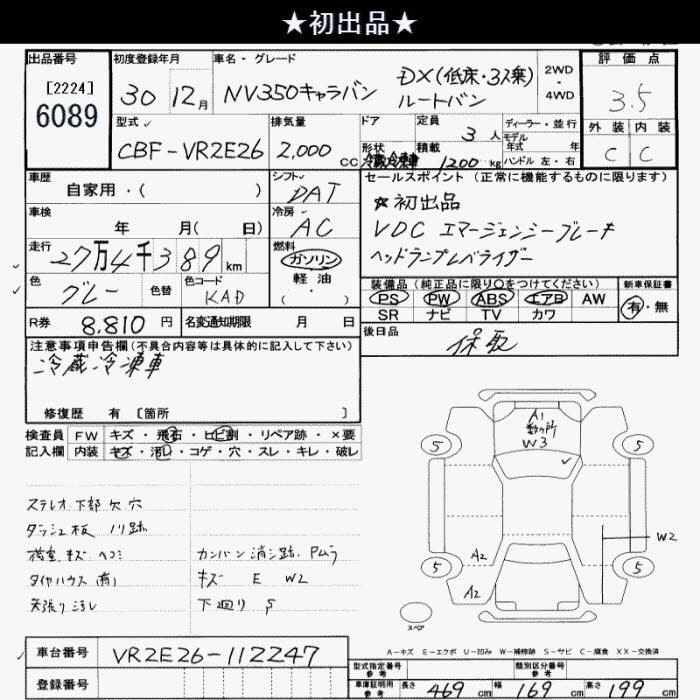 ★初出品★
出品番号 初度登録年月 車名・グレード 評価点
[2224]
6089
30 12月 NV350キャラバン DX(低床・3人乗) 2WD・4WD 3.5
ルートバン
型式 排気量 ドア 定員 3人 ディーラー・並行 外装 内装
モデル年式 年式
CBF-VR2E26 2,000cc 形状 冷蔵冷凍車 積載 1200kg ハンドル 左・右 C C
車歴 シフト セールスポイント(正常に機能するものに限ります)
自家用・( ) DAT
☆初出品
車検 冷房
年 月( 日) AC
VDC エマージェンシーブレーキ
走行 燃料
27万4千389km ガソリン
ヘッドランプレベライザー
軽油
色 色替 色コード ( ・ )
グレー KAD
装備品(純正品に限り○をつけてください) 新車保証書
PS PW ABS エアB AW 有・無
SR ナビ TV カワ
R券 8,810円 名変通知期限 月 日
後日品 保取
注意事項申告欄(不具合内容等は具体的に記入して下さい)
冷蔵冷凍車
修復歴 有 [箇所 ]
検査員 FW キズ・飛石・ヒビ割・リペア跡・×要
記入欄 内装 キズ・汚レ・コゲ・穴・スレ・キレ・破レ
ステレオ下部欠穴
ダッシュ板 ノリ跡
荷室キズヘコミ カンバン消シ跡、Pムラ
タイヤハウス キズ E W2
天張り汚レ 下廻り S
A1
数ヶ所
W3
5 5
W2
A2
5 5
A2
スペア
A-キズ E-エクボ U-凹み W-補修跡 S-サビ C-腐食 XX-交換済
車台番号 VR2E26-112247
登録番号
型式指定番号 参考 類別区分番号 参考
車庫証明用 参考 長さ 469cm 幅 169cm 高さ 199cm